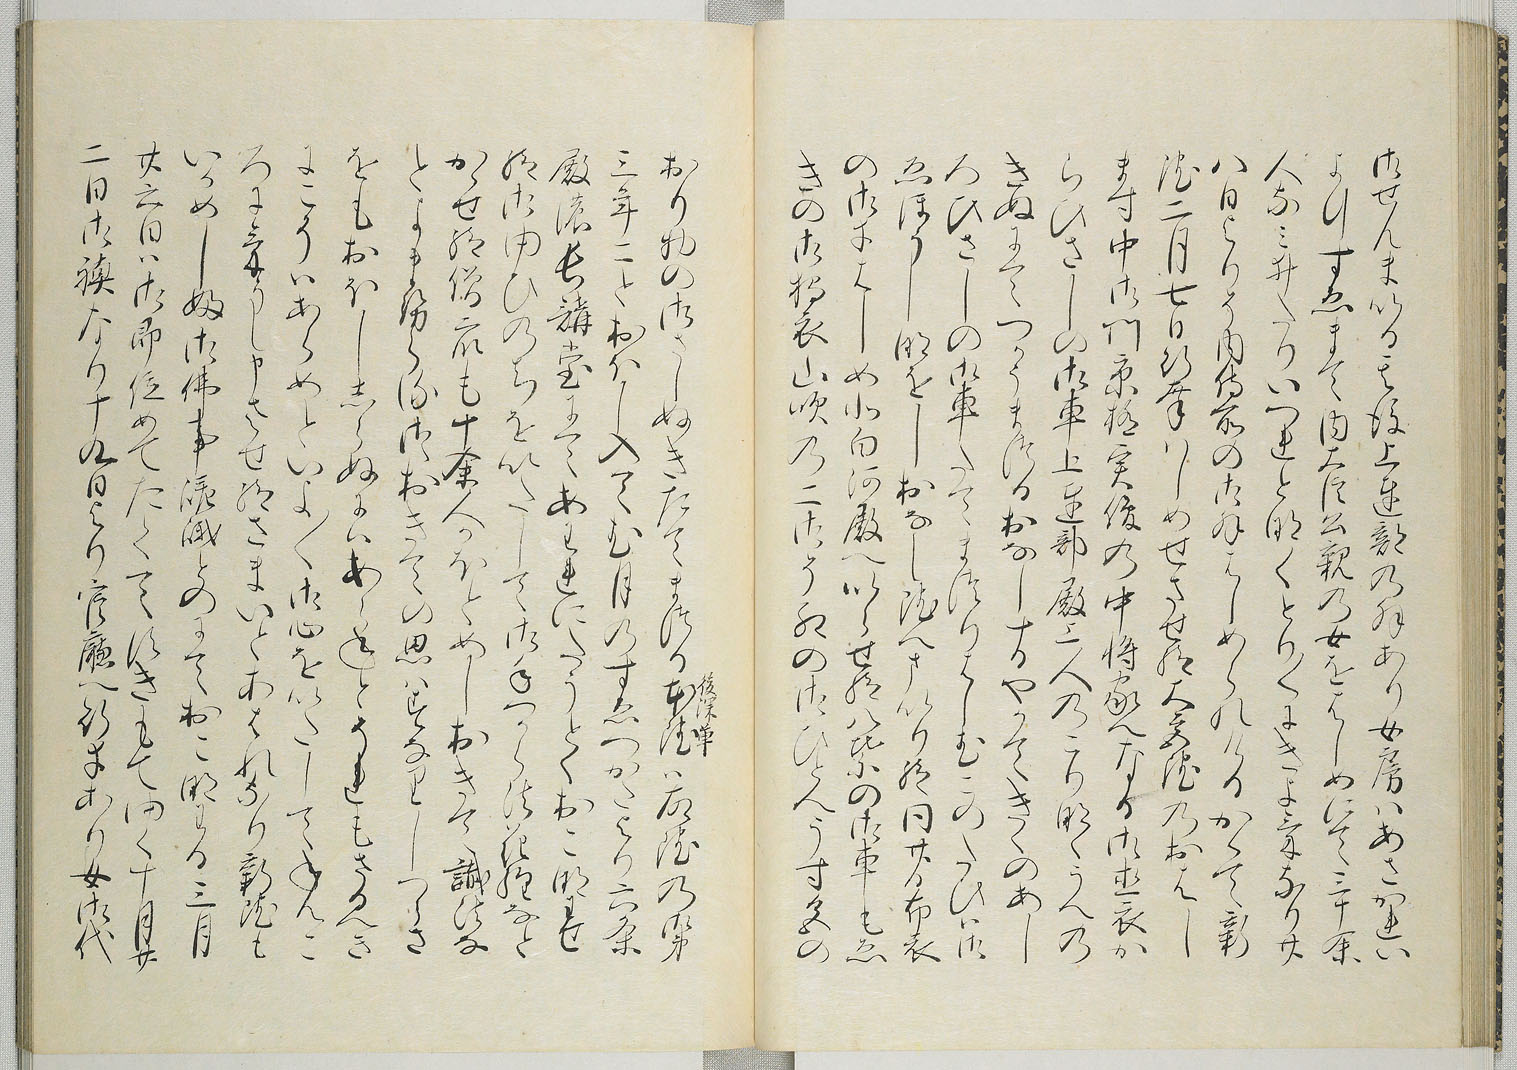 御せんまいる其後上達部の拝あり女房はあさかれい
よりすゑまて内大臣公親の女をはしめにて三十余
人なみゐたりいつれとなくとり／＼にきよけなり廿
八日よりそ内侍所の御拝はしめられけるかくて新
院二月七日御幸はしめせさせ給大宮院のおはし
ます中御門京極実俊の中将家へなる御直衣か
らひさしの御車上達部殿上人のこりなくうへの
きぬにてつかうまつるおなし十日やかてきくのあし
ろひさしの御車たてまつりはしむこのたひは御
ゑほうしなをしおなし院へまいり給同廿日布衣
の御幸はしめ北白河殿へいらせ給八葉の御車もえ
きの御狩衣山吹の二御そ紅の御ひとへうす色の
おり物の御さしぬきたてまつる本院は故院の第
後深草
三年ことおほし入てむ月のすゑつかたより六条
殿の長講堂にてあはれにたうとくおこなはせ
給御ゆひのちをいたして御手つから法花経なと
かゝせ給僧衆も十余人かほとめしおきて懺法な
とよませらる御おきての思はすなりしつらさ
をもおほししらぬにはあらねとそれもさるへき
にこそはあらめといよ／＼御心をいたしてねんこ
ろに孝うし申させ給さまいとあはれなり新院も
いかめしう御仏事嵯峨殿にておこなはる三月
廿六日は御即位めてたくてすきもてゆく十月廿
二日御禊なり十九日より官庁へ行幸あり女御代